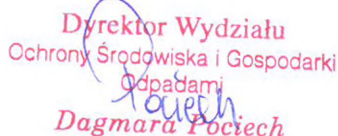 Dyrektor Wydziału
Ochrony Środowiska i Gospodarki
Odpadami
Pociech
Dagmara Pociech